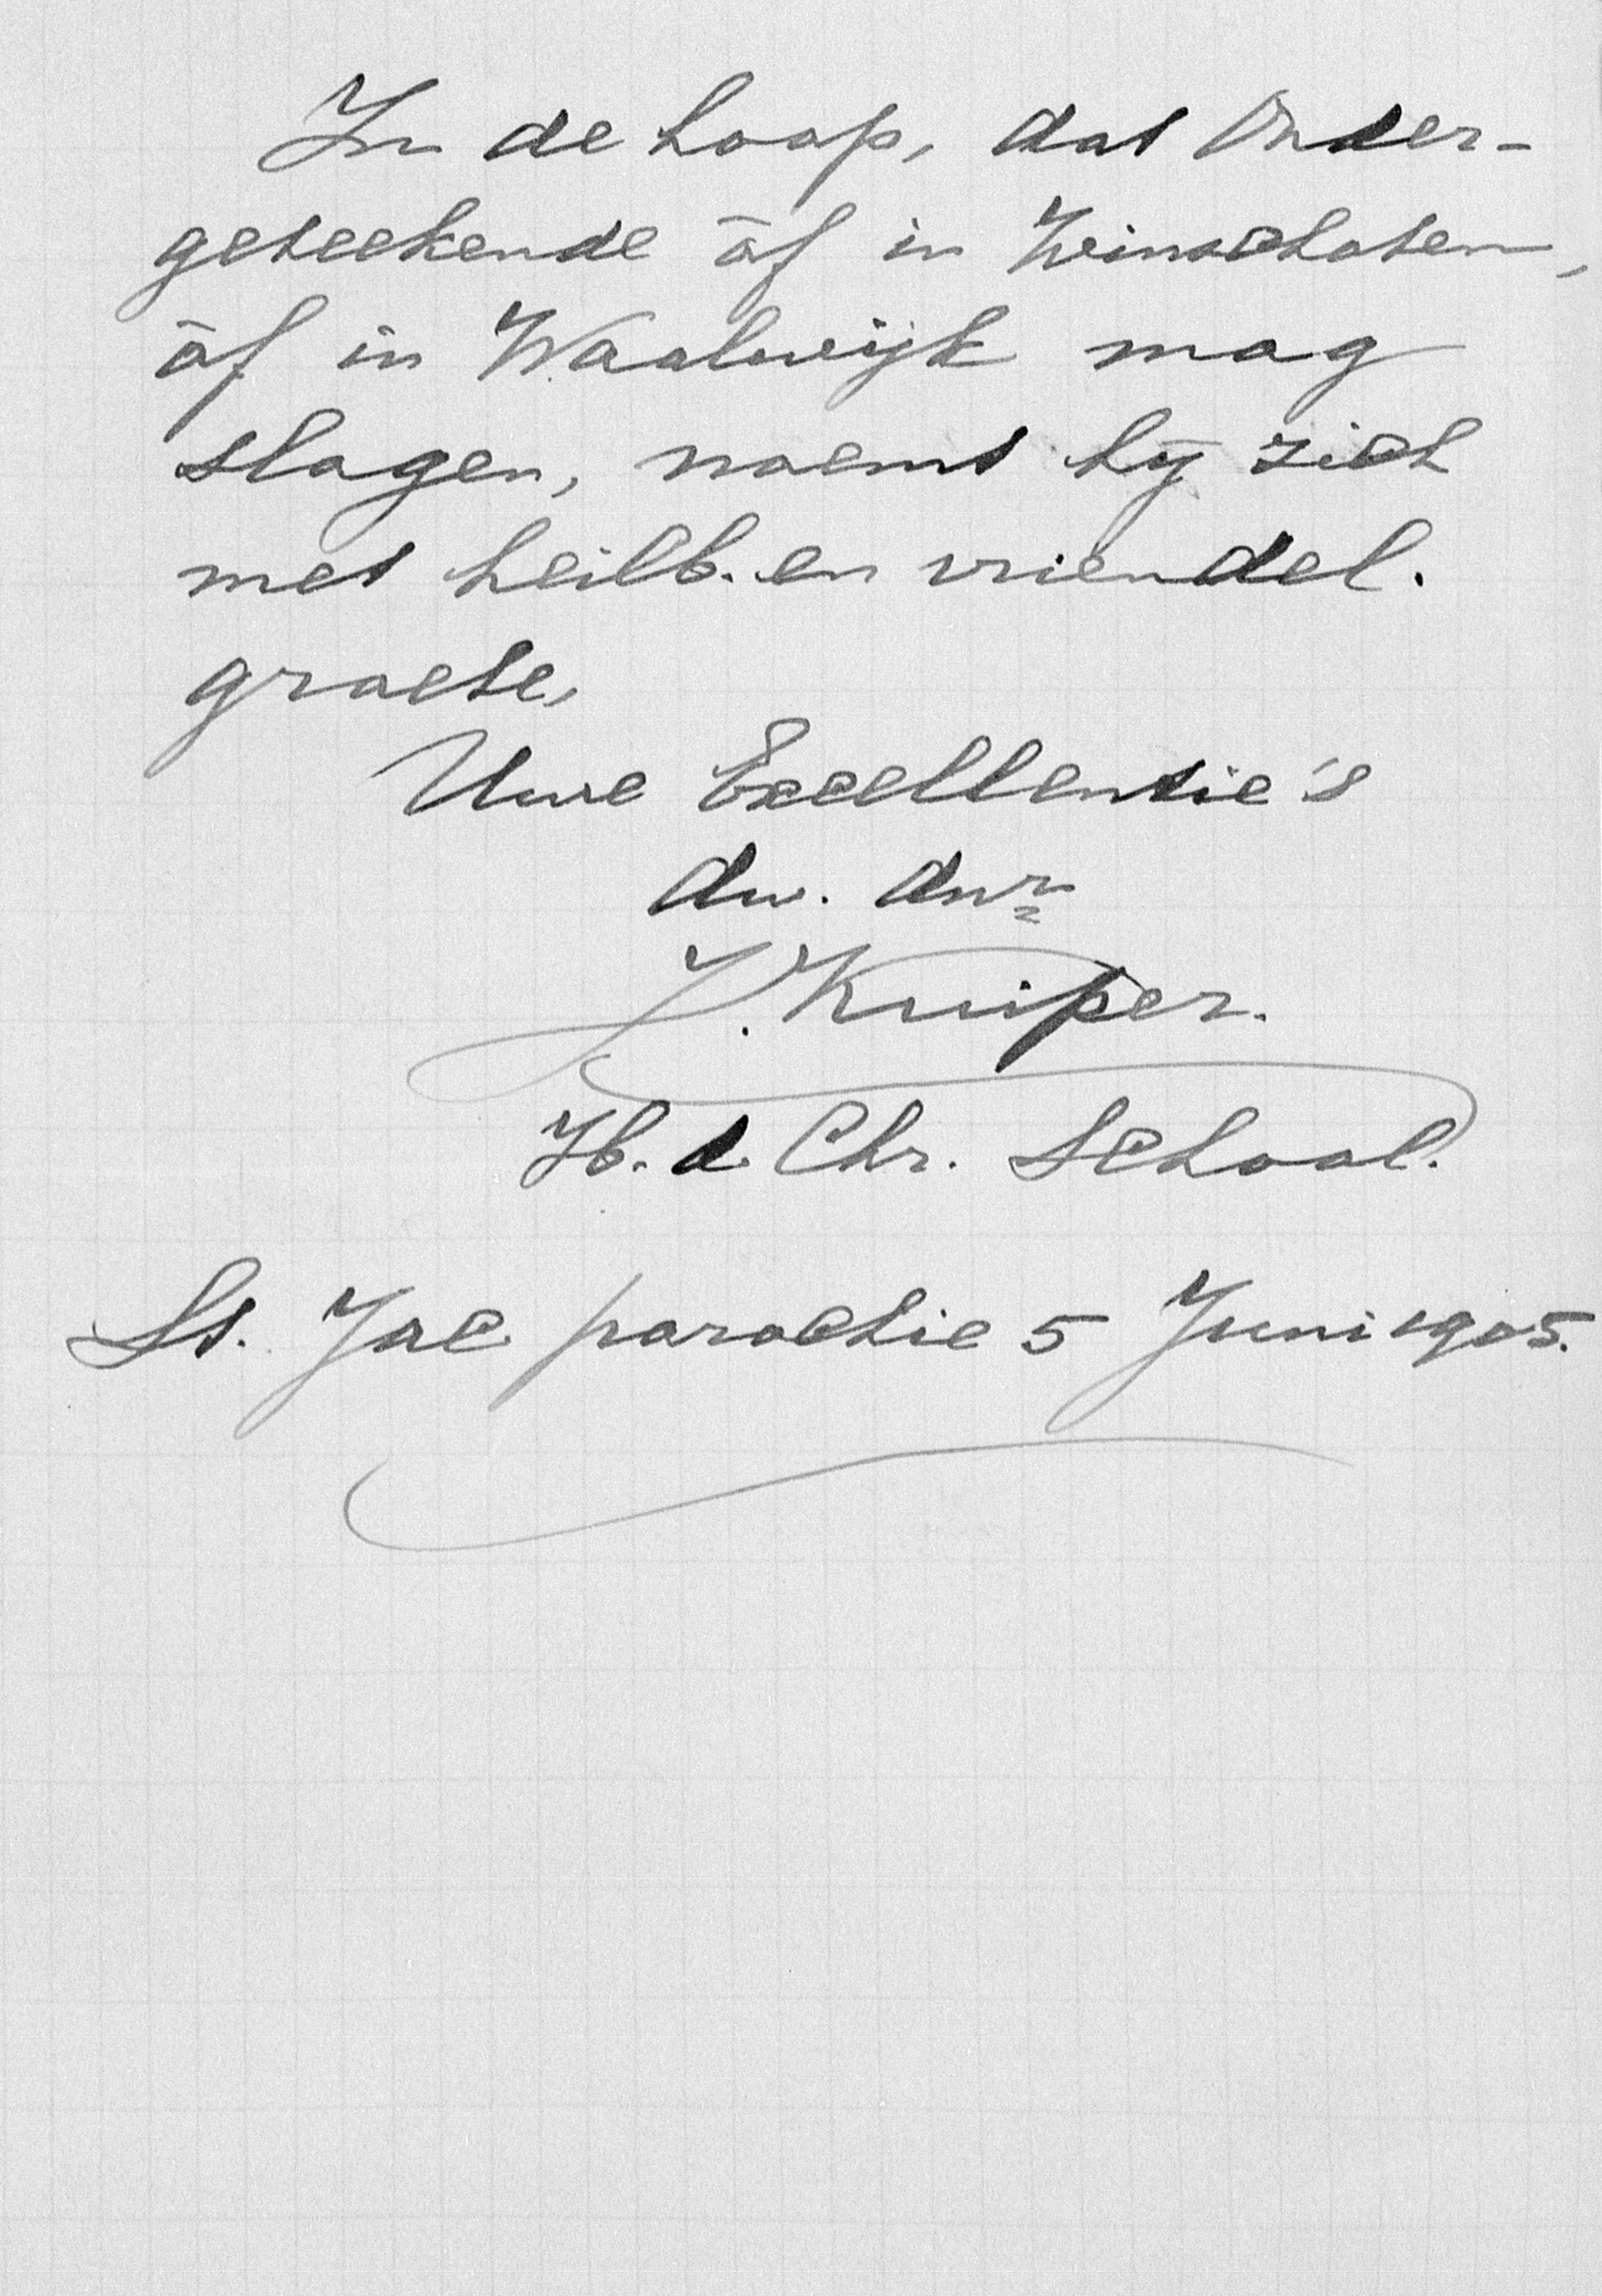 In de hoop, dat Onder-
geteekende òf in Winschoten,
òf in Waalwijk mag
slagen, noemt hij zich
met heilb. en vriendel.
groete,
Uwe Excellentie's
dw. dnr
J. Kuiper.
H. d. Chr. School.
St. Jac. parochie 5 Juni 1905.